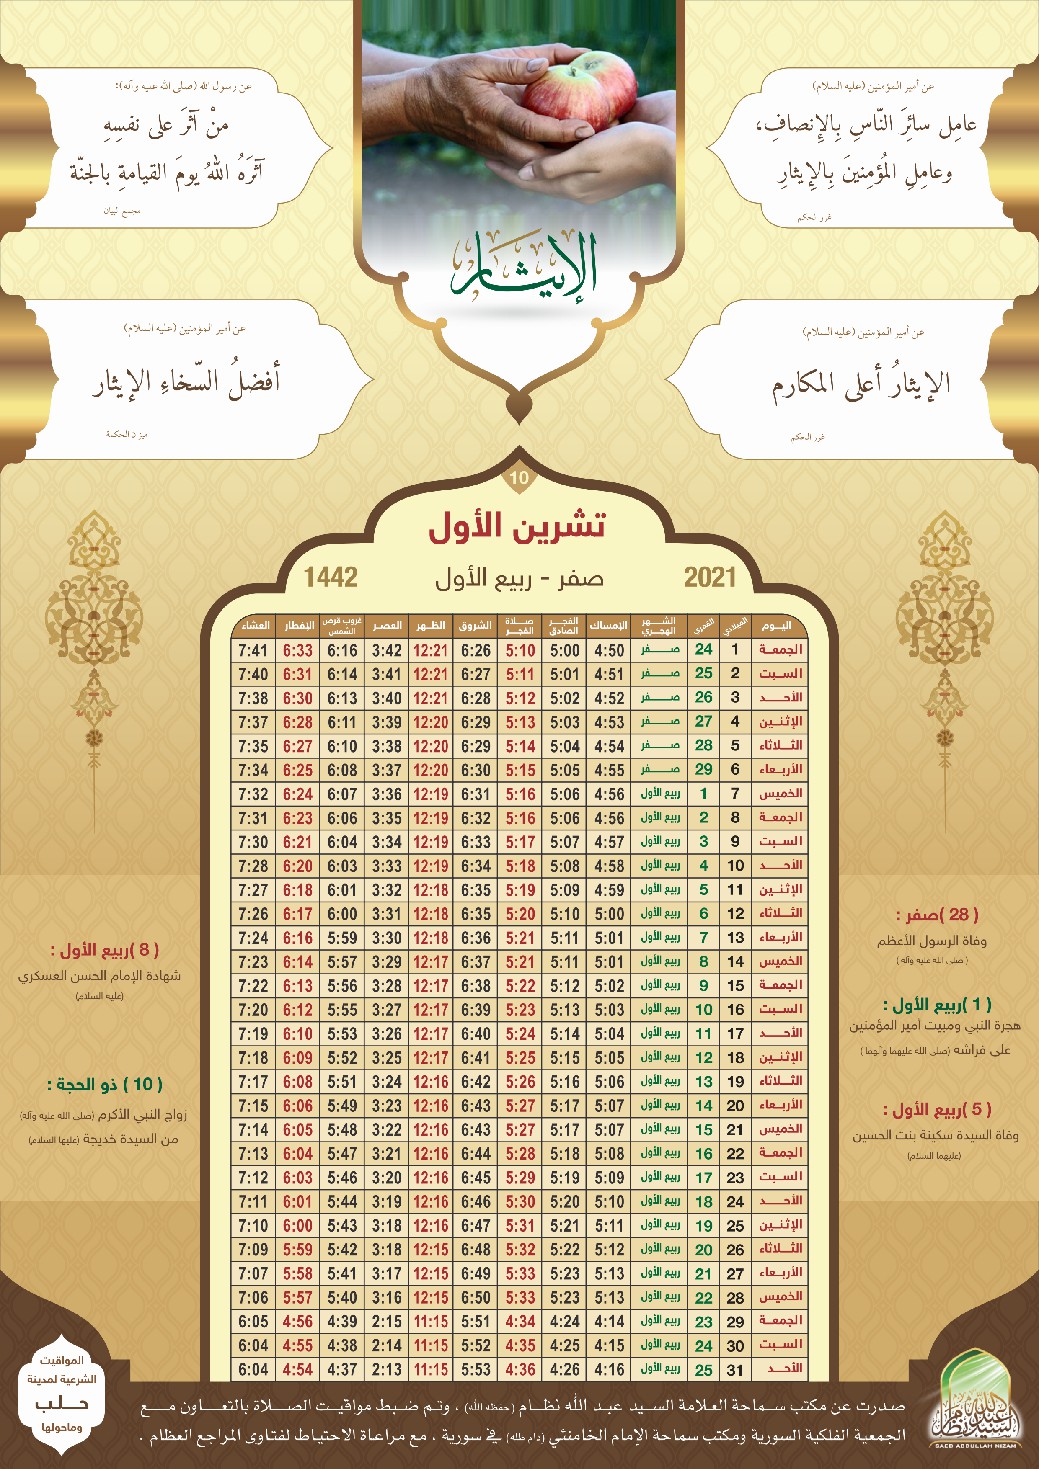 عن أمير المؤمنين (عليه السلام)
عامِل سائرَ النّاسِ بِالإنصافِ،
وعامِلِ المُؤمِنينَ بِالإيثارِ
غرر الحكم
عن رسول الله (صلى الله عليه وآله):
منْ آثَرَ على نفسِهِ
آثَرَهُ اللهُ يومَ القيامةِ بالجنّة
مجمع البيان
الإيثار
عن أمير المؤمنين (عليه السلام)
الإيثارُ أعلى المكارم
غرر الحكم
عن أمير المؤمنين (عليه السلام)
أفضلُ السّخاءِ الإيثار
ميزان الحكمة
10
تشرين الأول
2021 صفر - ربيع الأول 1442
اليوم الميلادي القمري الشهر الهجري الإمساك الفجر الصادق صلاة الفجر الشروق الظهر العصر غروب قرص الشمس الإفطار العشاء
الجمعة 1 24 صفر 4:50 5:00 5:10 6:26 12:21 3:42 6:16 6:33 7:41
السبت 2 25 صفر 4:51 5:01 5:11 6:27 12:21 3:41 6:14 6:31 7:40
الأحد 3 26 صفر 4:52 5:02 5:12 6:28 12:21 3:40 6:13 6:30 7:38
الإثنين 4 27 صفر 4:53 5:03 5:13 6:29 12:20 3:39 6:11 6:28 7:37
الثلاثاء 5 28 صفر 4:54 5:04 5:14 6:29 12:20 3:38 6:10 6:27 7:35
الأربعاء 6 29 صفر 4:55 5:05 5:15 6:30 12:20 3:37 6:08 6:25 7:34
الخميس 7 1 ربيع الأول 4:56 5:06 5:16 6:31 12:19 3:36 6:07 6:24 7:32
الجمعة 8 2 ربيع الأول 4:56 5:06 5:16 6:32 12:19 3:35 6:06 6:23 7:31
السبت 9 3 ربيع الأول 4:57 5:07 5:17 6:33 12:19 3:34 6:04 6:21 7:30
الأحد 10 4 ربيع الأول 4:58 5:08 5:18 6:34 12:19 3:33 6:03 6:20 7:28
الإثنين 11 5 ربيع الأول 4:59 5:09 5:19 6:35 12:18 3:32 6:01 6:18 7:27
الثلاثاء 12 6 ربيع الأول 5:00 5:10 5:20 6:35 12:18 3:31 6:00 6:17 7:26
الأربعاء 13 7 ربيع الأول 5:01 5:11 5:21 6:36 12:18 3:30 5:59 6:16 7:24
الخميس 14 8 ربيع الأول 5:01 5:11 5:21 6:37 12:17 3:29 5:57 6:14 7:23
الجمعة 15 9 ربيع الأول 5:02 5:12 5:22 6:38 12:17 3:28 5:56 6:13 7:22
السبت 16 10 ربيع الأول 5:03 5:13 5:23 6:39 12:17 3:27 5:55 6:12 7:20
الأحد 17 11 ربيع الأول 5:04 5:14 5:24 6:40 12:17 3:26 5:53 6:10 7:19
الإثنين 18 12 ربيع الأول 5:05 5:15 5:25 6:41 12:17 3:25 5:52 6:09 7:18
الثلاثاء 19 13 ربيع الأول 5:06 5:16 5:26 6:42 12:16 3:24 5:51 6:08 7:17
الأربعاء 20 14 ربيع الأول 5:07 5:17 5:27 6:43 12:16 3:23 5:49 6:06 7:15
الخميس 21 15 ربيع الأول 5:07 5:17 5:27 6:43 12:16 3:22 5:48 6:05 7:14
الجمعة 22 16 ربيع الأول 5:08 5:18 5:28 6:44 12:16 3:21 5:47 6:04 7:13
السبت 23 17 ربيع الأول 5:09 5:19 5:29 6:45 12:16 3:20 5:46 6:03 7:12
الأحد 24 18 ربيع الأول 5:10 5:20 5:30 6:46 12:16 3:19 5:44 6:01 7:11
الإثنين 25 19 ربيع الأول 5:11 5:21 5:31 6:47 12:16 3:18 5:43 6:00 7:10
الثلاثاء 26 20 ربيع الأول 5:12 5:22 5:32 6:48 12:15 3:18 5:42 5:59 7:09
الأربعاء 27 21 ربيع الأول 5:13 5:23 5:33 6:49 12:15 3:17 5:41 5:58 7:07
الخميس 28 22 ربيع الأول 5:13 5:23 5:33 6:50 12:15 3:16 5:40 5:57 7:06
الجمعة 29 23 ربيع الأول 4:14 4:24 4:34 5:51 11:15 2:15 4:39 4:56 6:05
السبت 30 24 ربيع الأول 4:15 4:25 4:35 5:52 11:15 2:14 4:38 4:55 6:04
الأحد 31 25 ربيع الأول 4:16 4:26 4:36 5:53 11:15 2:13 4:37 4:54 6:04
( 28 )صفر :
وفاة الرسول الأعظم
( صلى الله عليه وآله )
( 1 )ربيع الأول :
هجرة النبي ومبيت أمير المؤمنين
على فراشه (صلى الله عليهما وآلهما )
( 5 )ربيع الأول :
وفاة السيدة سكينة بنت الحسين
(عليهما السلام)
( 8 )ربيع الأول :
شهادة الإمام الحسن العسكري
(عليه السلام)
( 10 ) ذو الحجة :
زواج النبي الأكرم (صلى الله عليه وآله)
من السيدة خديجة (عليها السلام)
المواقيت
الشرعية لمدينة
حلب
وماحولها
صدرت عن مكتب سماحة العلامة السيد عبد الله نظام (حفظه الله) ، وتم ضبط مواقيت الصلاة بالتعاون مع
الجمعية الفلكية السورية ومكتب سماحة الإمام الخامنئي (دام ظله) في سورية ، مع مراعاة الاحتياط لفتاوى المراجع العظام .
السيد عبدالله نظام
SAED ABDULLAH NIZAM